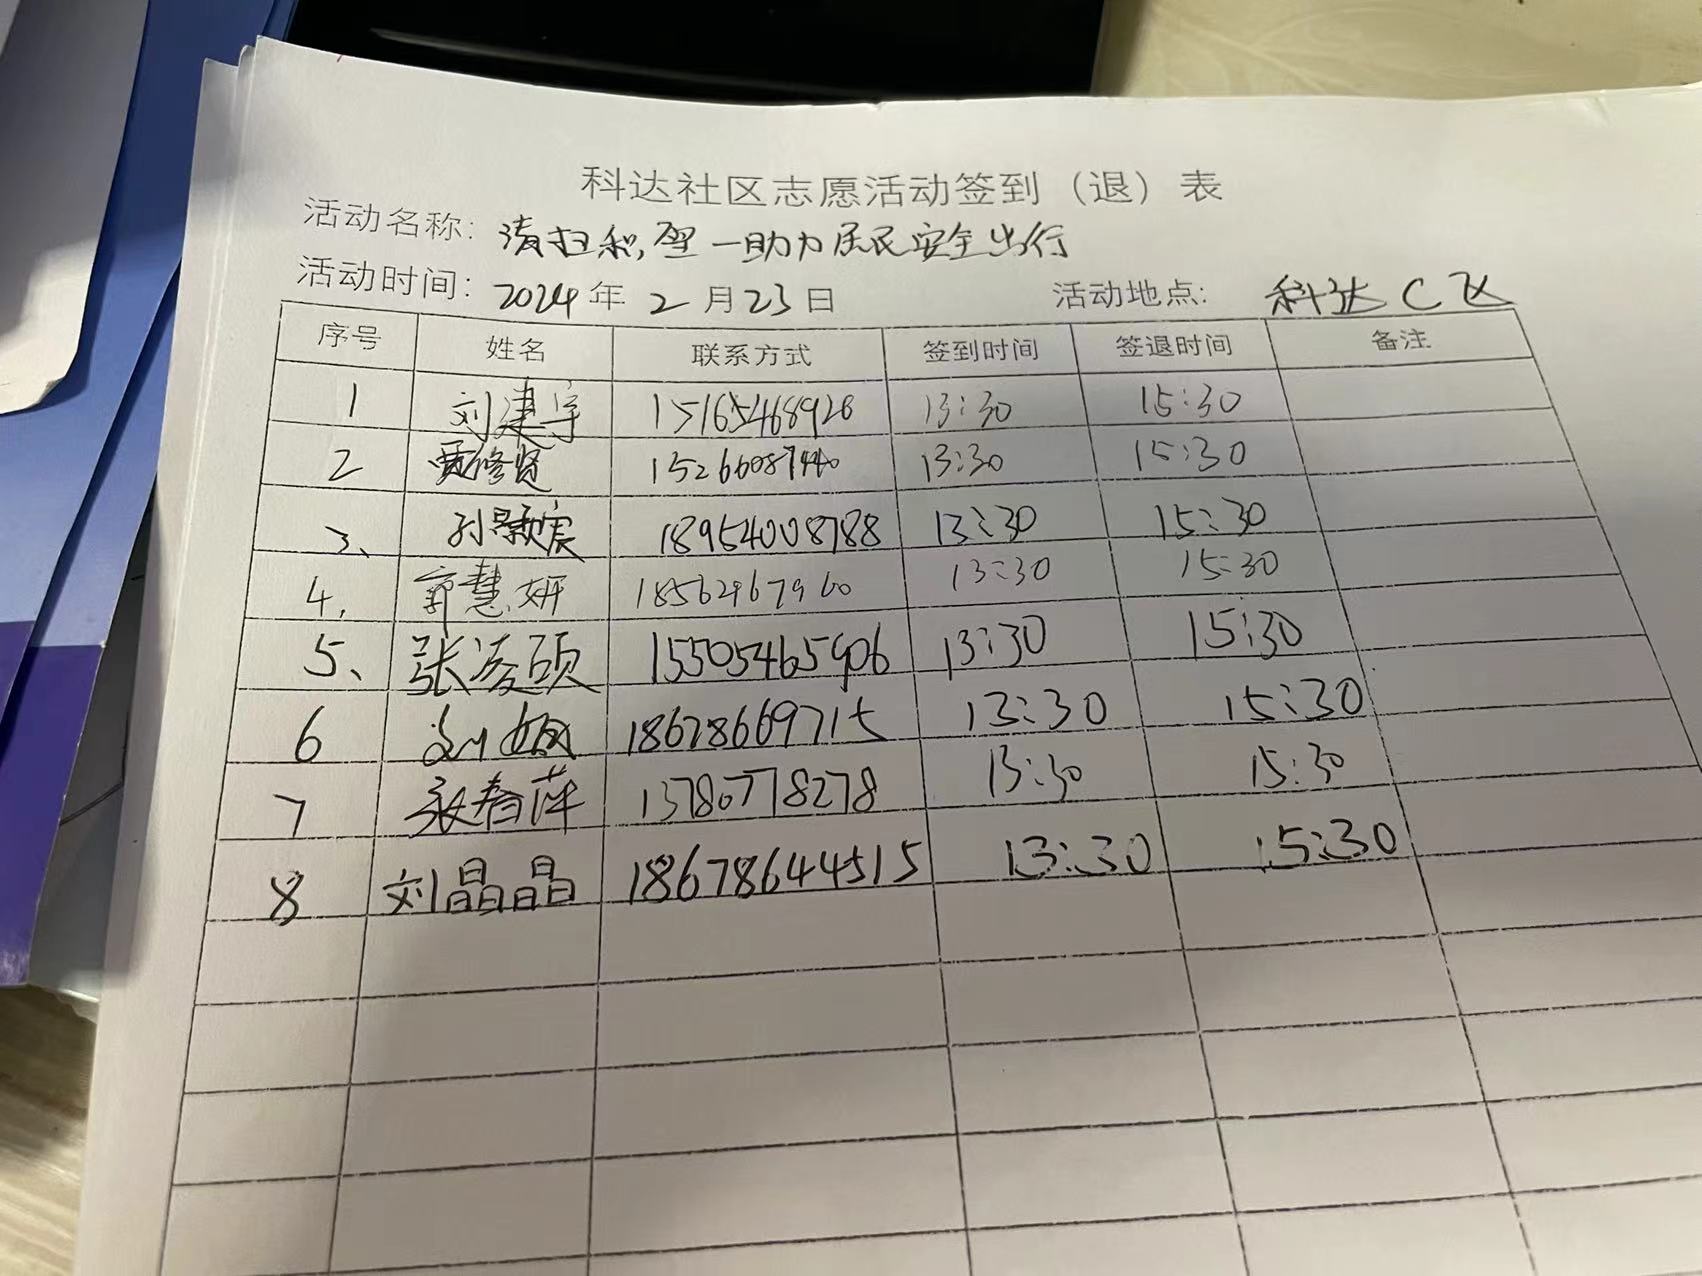 科达社区志愿活动签到（退）表
活动名称：清扫积雪一助力居民安全出行
活动时间：2024年2月23日 活动地点：科达C区
序号 姓名 联系方式 签到时间 签退时间 备注
1 刘建宇 15165468928 13:30 15:30
2 贾修贤 15266087440 13:30 15:30
3、 孙颢宸 18954008788 13:30 15:30
4. 郭慧妍 18562967960 13:30 15:30
5、 张凌硕 15505465906 13:30 15:30
6 刘 18678669715 13:30 15:30
7 张春萍 13780778278 13:30 15:30
8 刘晶晶 18678644515 13:30 15:30